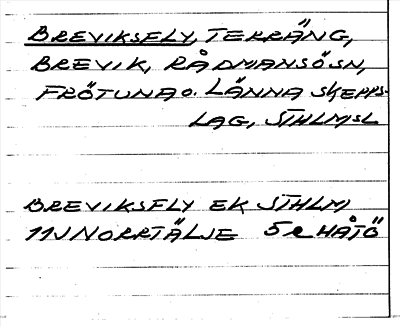 BREVIKSFLY, TERRÄNG,
BREVIK, RÅDMANSÖ SN,
FRÖTUNA O. LÄNNA SKEPPS-
LAG, STHLMSL
BREVIKSFLY EK STHLM
11J NORRTÄLJE 5e HÅTÖ